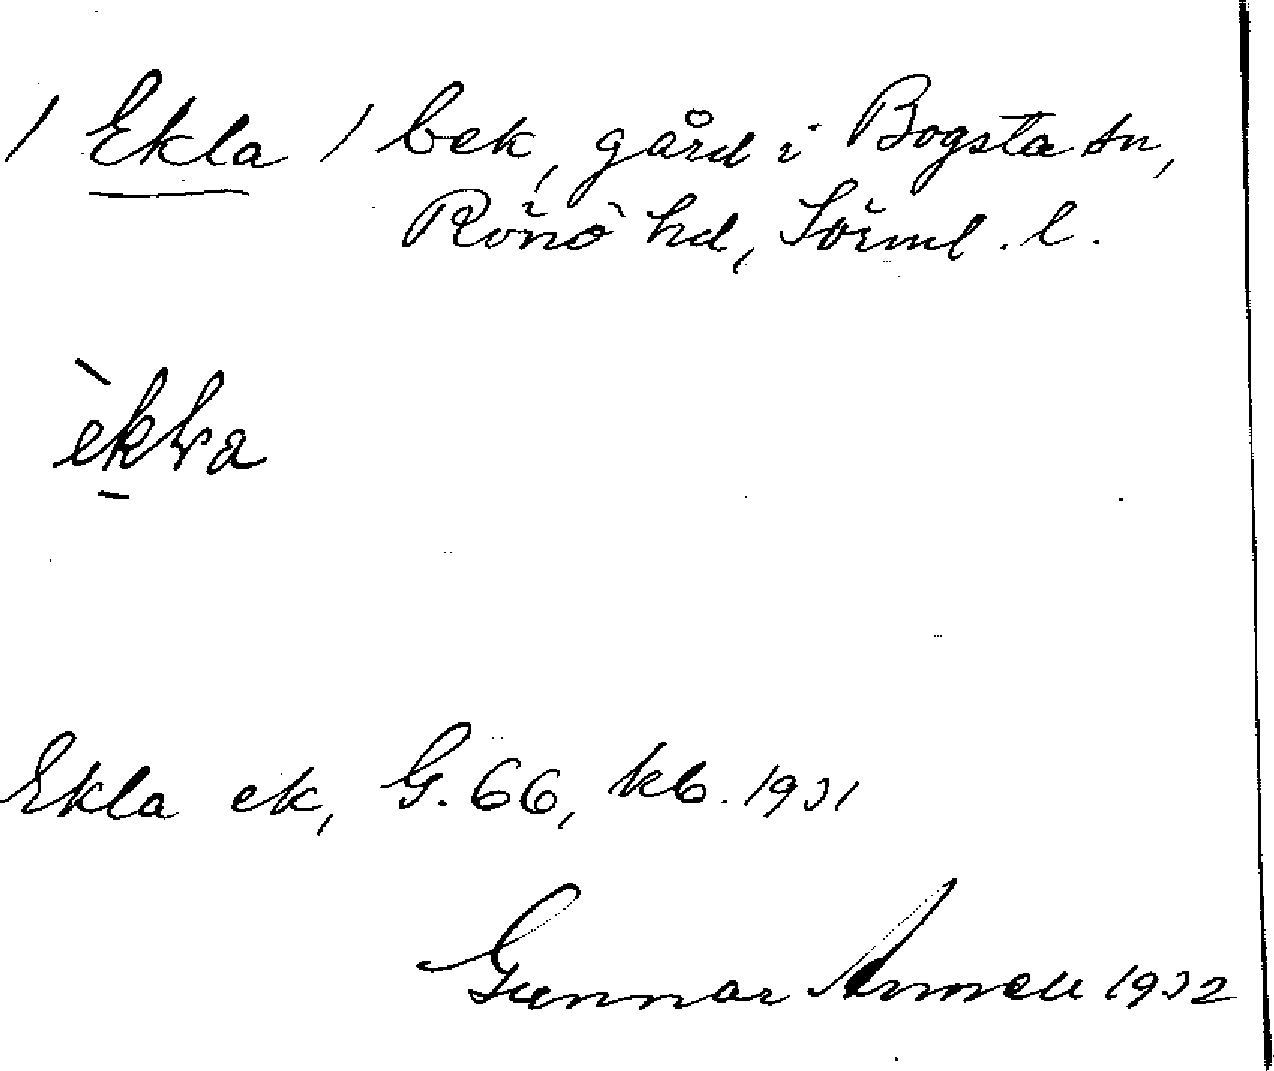 / Ekla / bek, gård i Bogsta sn,
Rönö hd, Sörml. l.
èkla
Ekla ek, G. 66, kb. 1931
Gunnar 1932